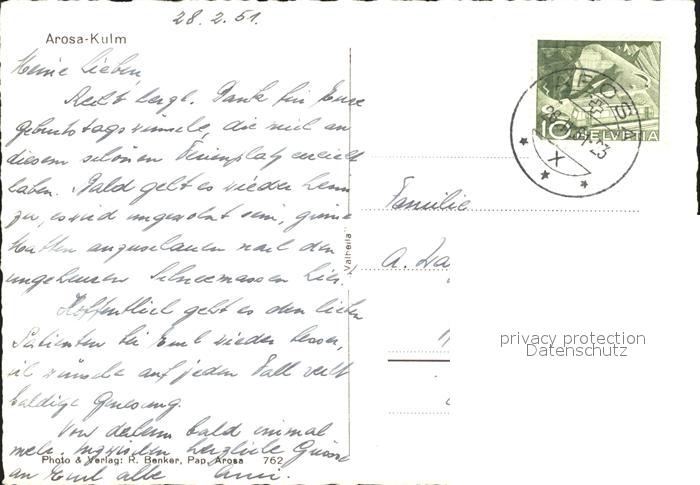 28. 2. 51.
Arosa-Kulm
Meine Lieben,
Recht herzl. Dank für Eure
Geburtstagswünsche, die mich an
diesem schönen Ferienplatz erreicht
haben. Bald geht es wieder heim
zu, es wird ungewohnt sein, grüne
Matten anzuschauen nach den
ungeheuren Schneemassen hier.
Hoffentlich geht es den lieben
Patienten bei Euch wieder besser,
ich wünsche auf jeden Fall recht
baldige Genesung.
Von daheim bald einmal
mehr. Inzwischen herzliche Grüsse
an Euch alle
Photo & Verlag: R. Benker, Pap. Arosa 762
„Valhella"
AROSA
28.II.51-23
X
10 HELVETIA
Familie
A. Za
privacy protection
Datenschutz